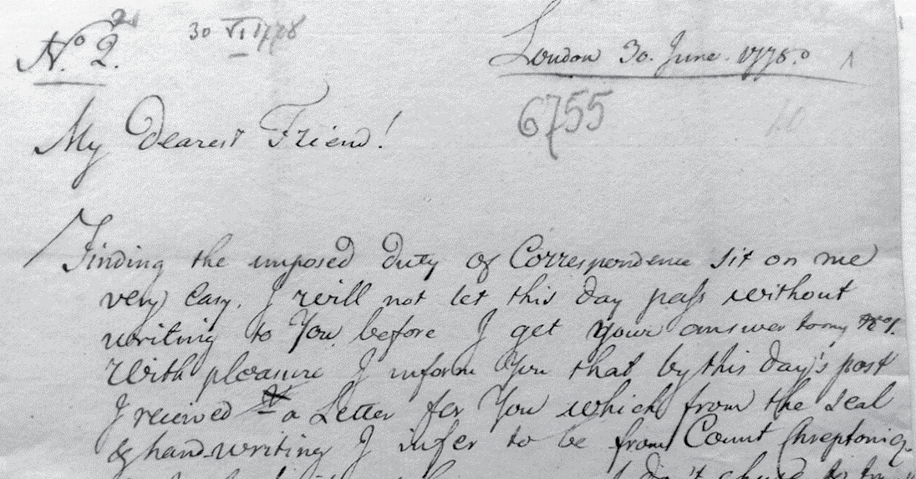 No. 2. 30 VI 1778 London 30. June. 1778.
6755
My Dearest Friend!
Finding the imposed duty of Correspondence sit on me
very easy. I will not let this day pass without
writing to You before I get your answer to my No 1.
With pleasure I inform You that by this day's post
I received a Letter for You which from the seal
& hand-writing I infer to be from Count Chreptoniq
I don't chuse to